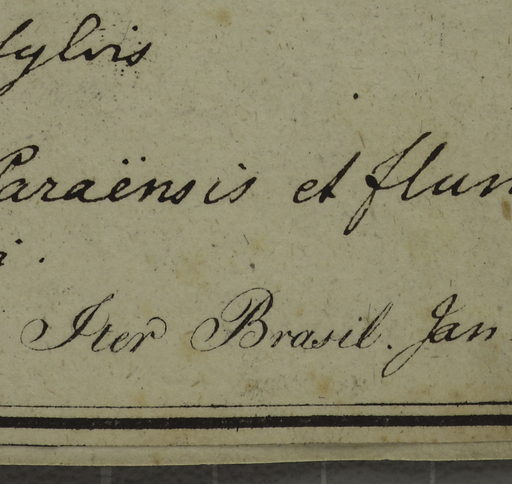 sylvis
Paraënsis et flum
i.
Iter Brasil. Jan